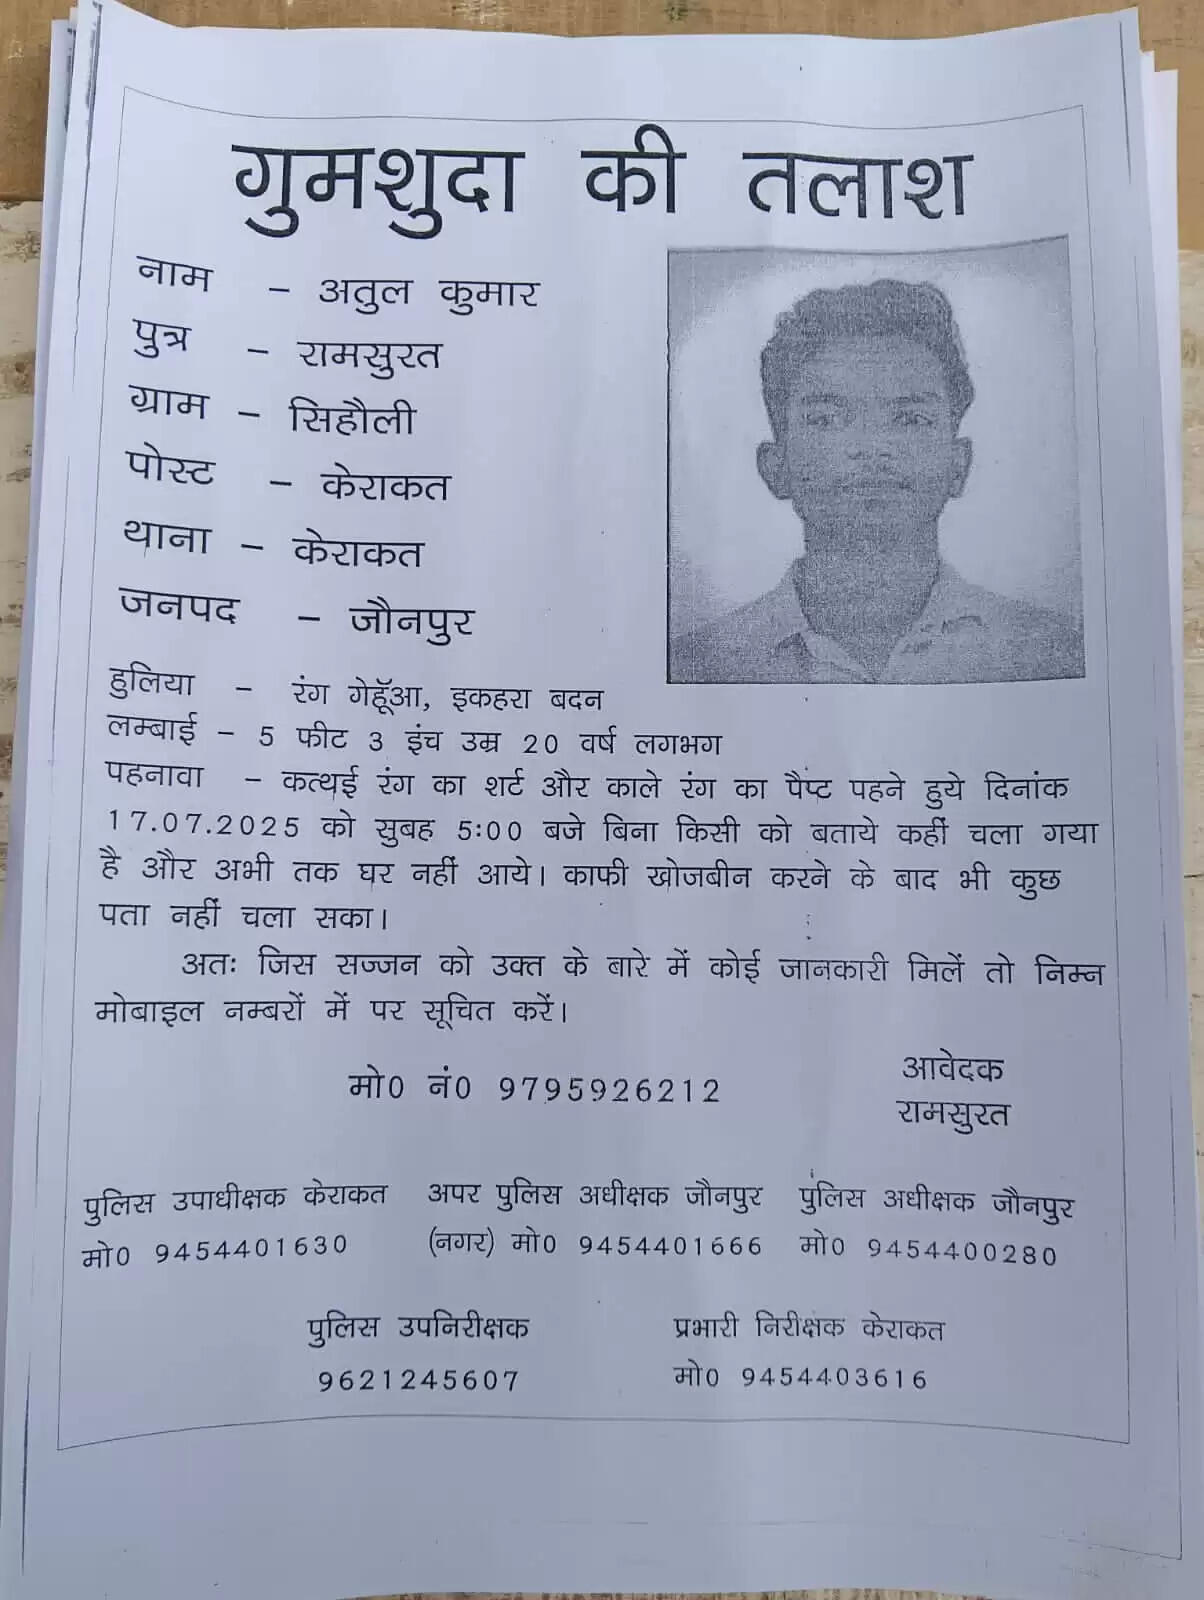 गुमशुदा की तलाश
नाम - अतुल कुमार
पुत्र - रामसुरत
ग्राम - सिहौली
पोस्ट - केराकत
थाना - केराकत
जनपद - जौनपुर
हुलिया - रंग गेहूँआ, इकहरा बदन
लम्बाई - 5 फीट 3 इंच उम्र 20 वर्ष लगभग
पहनावा - कत्थई रंग का शर्ट और काले रंग का पैण्ट पहने हुये दिनांक
17.07.2025 को सुबह 5:00 बजे बिना किसी को बताये कहीं चला गया
है और अभी तक घर नहीं आये। काफी खोजबीन करने के बाद भी कुछ
पता नहीं चला सका।
अतः जिस सज्जन को उक्त के बारे में कोई जानकारी मिलें तो निम्न
मोबाइल नम्बरों में पर सूचित करें।
मो0 नं0 9795926212
आवेदक
रामसुरत
पुलिस उपाधीक्षक केराकत
मो0 9454401630
अपर पुलिस अधीक्षक जौनपुर
(नगर) मो0 9454401666
पुलिस अधीक्षक जौनपुर
मो0 9454400280
पुलिस उपनिरीक्षक
9621245607
प्रभारी निरीक्षक केराकत
मो0 9454403616